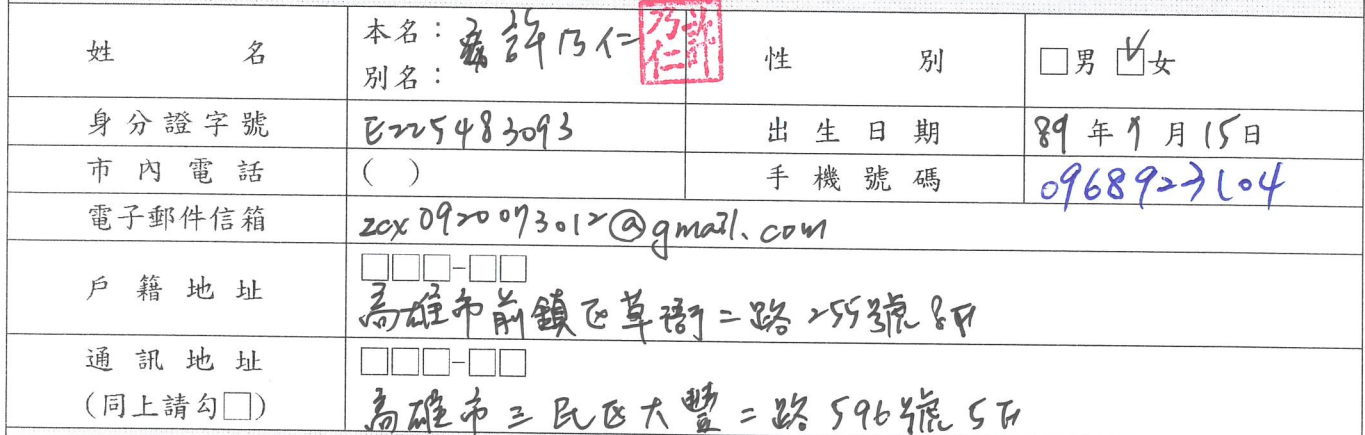 姓名 本名：許乃仁 許乃仁 性別 □男 ☑女
別名：
身分證字號 E225483093 出生日期 89年9月15日
市內電話 ( ) 手機號碼 0968923104
電子郵件信箱 zcx0920073012@gmail.com
□□□-□□
戶籍地址 高雄市前鎮區草衙二路255號8F
通訊地址 □□□-□□
(同上請勾□) 高雄市三民區大豐二路596號5F